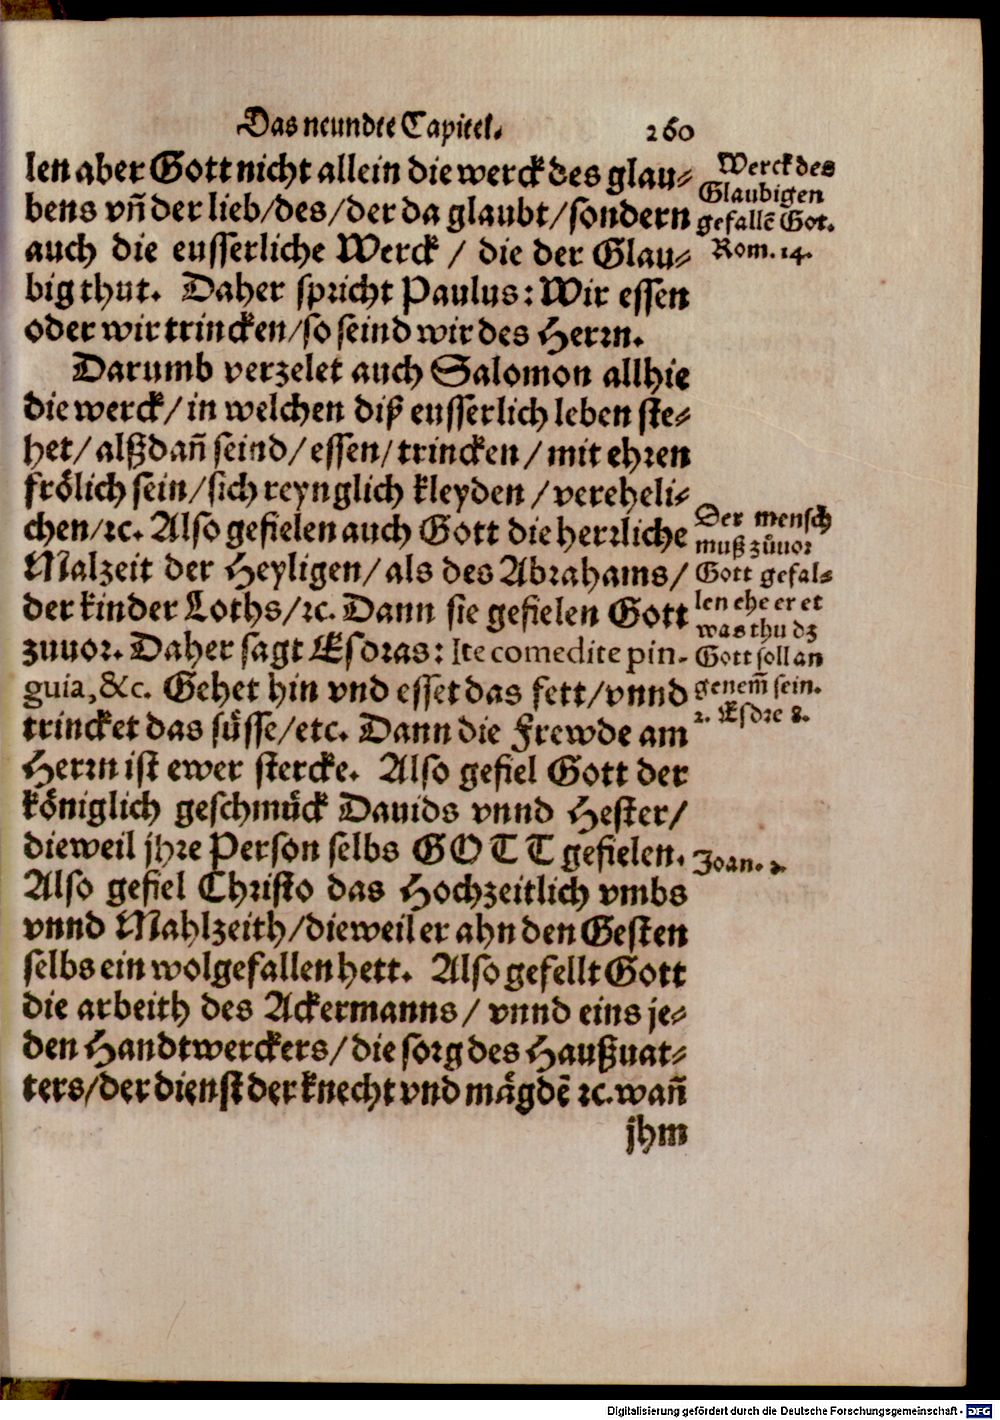 Das neundte Capitel. 260
len aber Gott nicht allein die werck des glau-
bens vñ der lieb/des/der da glaubt/sondern
auch die eusserliche Werck / die der Glau-
big thut. Daher spricht Paulus: Wir essen
oder wir trincken/so seind wir des Herrn.
Werck des
Glaubigen
gefallẽ Got.
Rom. 14.
Darumb verzelet auch Salomon allhie
die werck/in welchen diß eusserlich leben ste-
het/alßdañ seind/essen/trincken/mit ehren
frölich sein/sich reynglich kleyden/vereheli-
chen/ꝛc. Also gefielen auch Gott die herrliche
Malzeit der Heyligen/als des Abrahams/
der kinder Loths/ꝛc. Dann sie gefielen Gott
zuuor. Daher sagt Esdras: Ite comedite pin-
guia, &c. Gehet hin vnd esset das fett/vnnd
trincket das süsse/etc. Dann die Frewde am
Herrn ist ewer stercke. Also gefiel Gott der
königlich geschmück Dauids vnnd Hester/
dieweil jhre Person selbs GOTT gefielen.
Also gefiel Christo das Hochzeitlich vmbs
vnnd Mahlzeith/dieweil er ahn den Gesten
selbs ein wolgefallen hett. Also gefellt Gott
die arbeith des Ackermanns/vnnd eins je-
den Handtwerckers/die sorg des Haußuat-
ters/der dienst der knecht vnd mägdẽ ꝛc. wañ
jhm
Der mensch
muß zůuor
Gott gefal-
len ehe er et
was thu dz
Gott soll an
genem̃ sein.
2. Esdre 8.
Joan. 2.
Digitalisierung gefördert durch die Deutsche Forschungsgemeinschaft - DFG